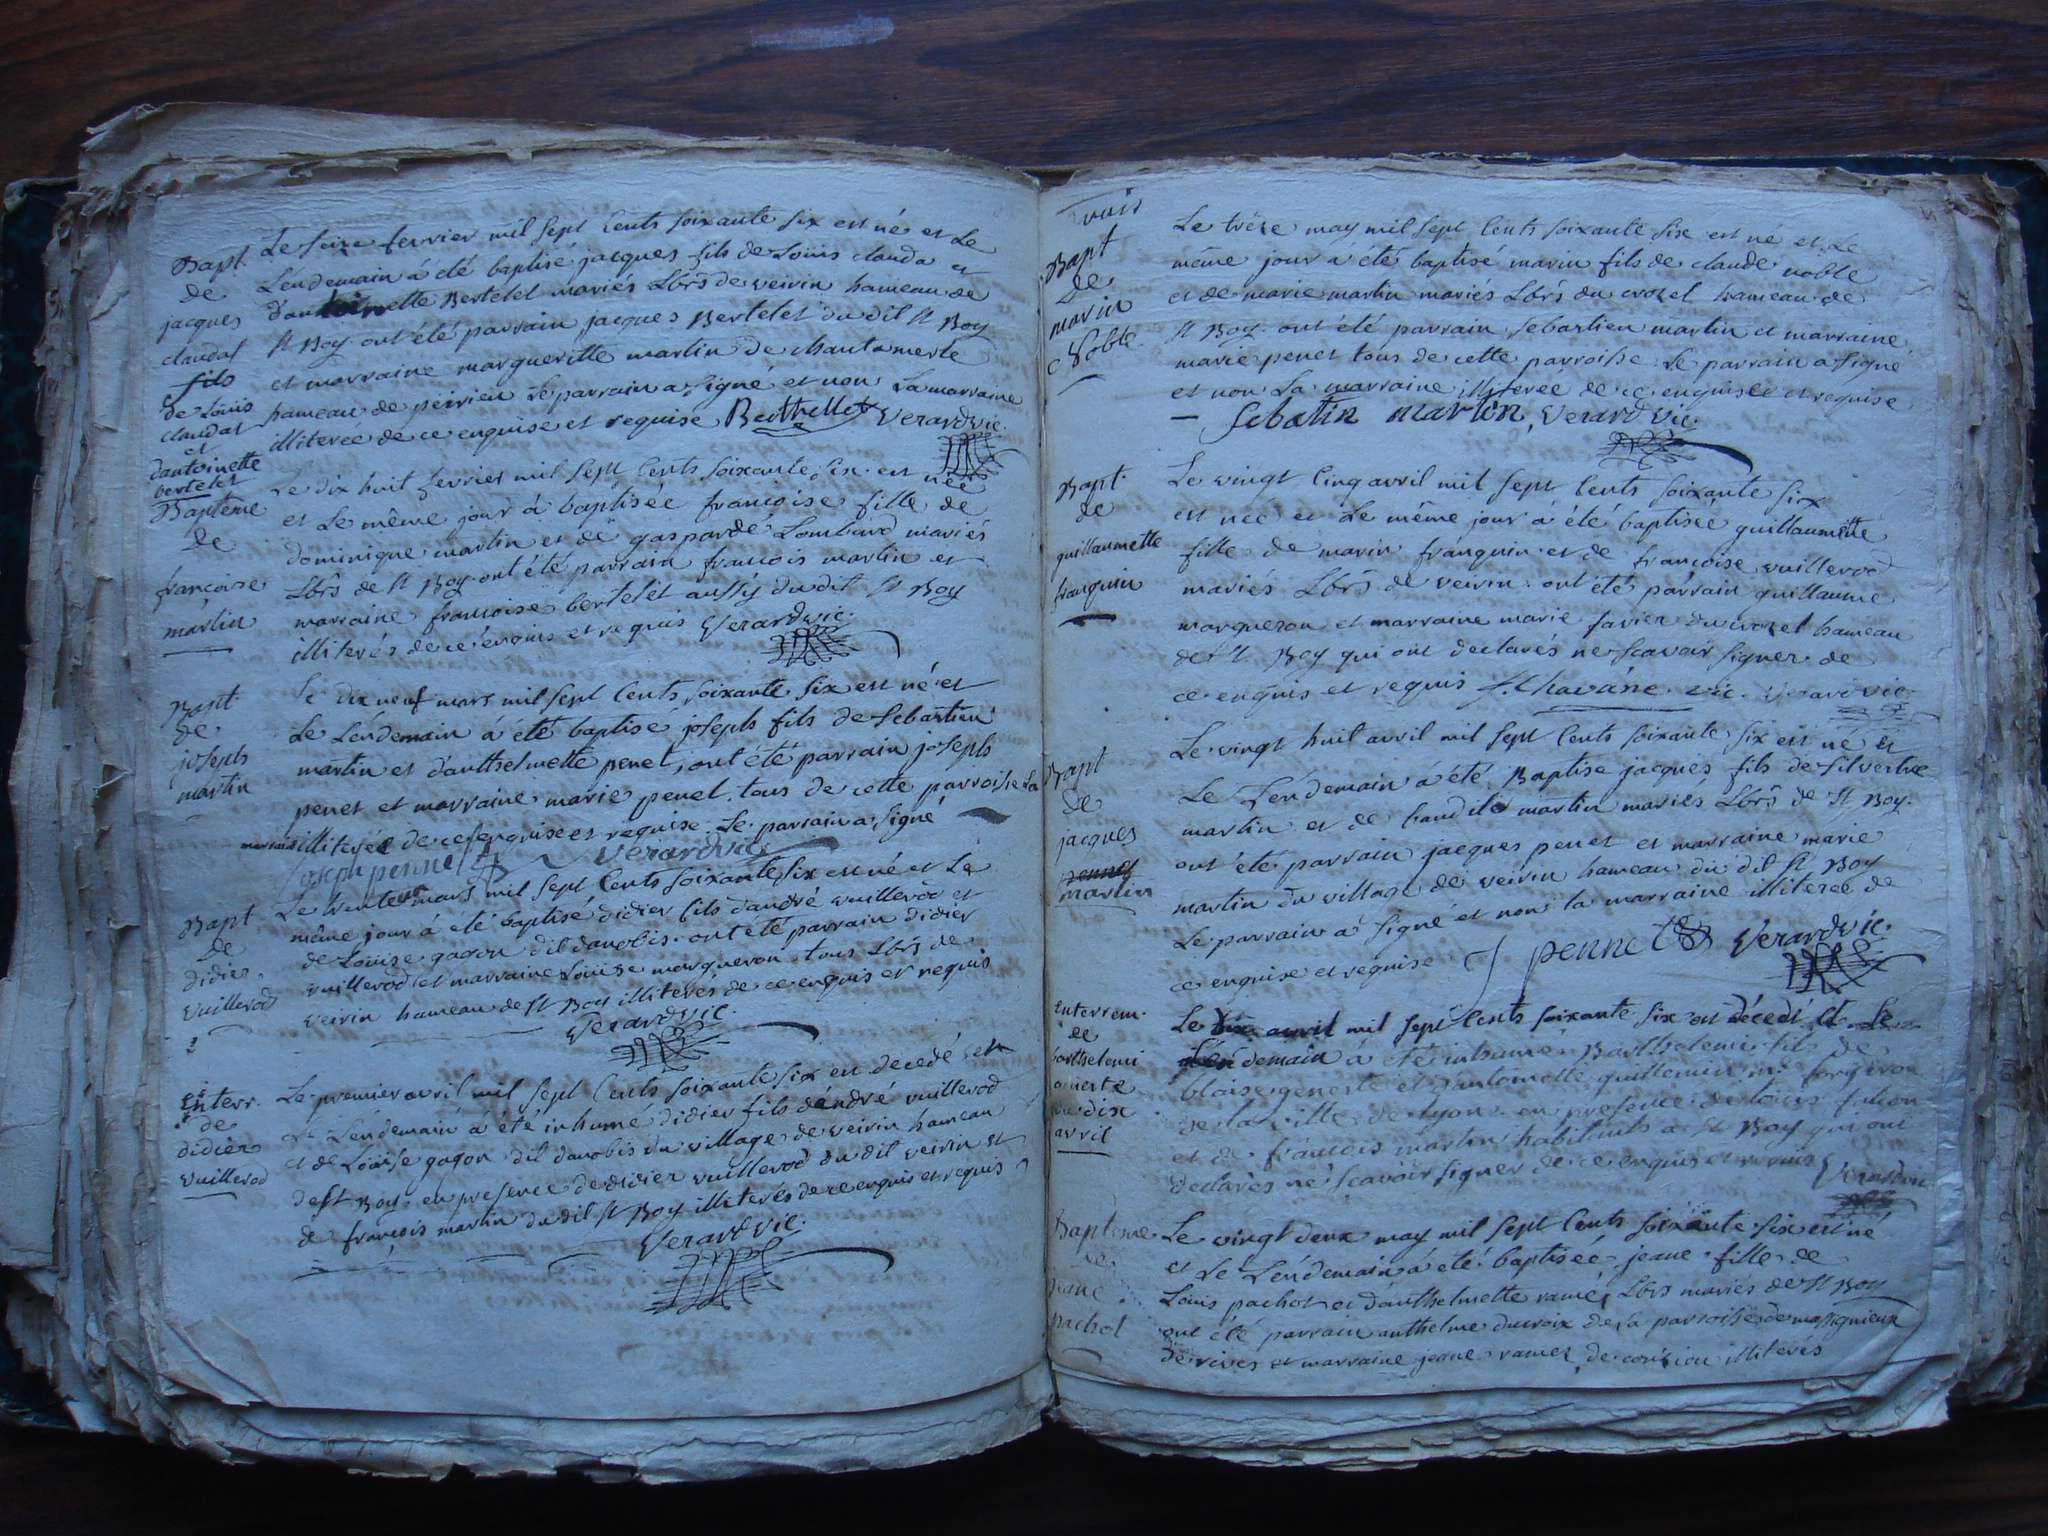 Bapt.
de
jacques
claudat
fils
de Louis
claudat
et
dantoinette
bertelet
Le seize fevrier mil sept cents soixante six est né et Le
Lendemain à été baptisé jacques fils de Loüis clauda et
d'antoinette Bertelet mariés Lbrs de veirin hameau de
St Boy. ont été parrain jacques Bertelet du dit St Boy
et marraine margueritte martin de chantemerle
hameau de peirieu Le parrain a signé et non La marraine
illiterée de ce enquise et requise. Berthellet Verard vic.
Baptême
de
francoise
martin
Le dix huit fevrier mil sept cents soixante six est née
et Le même jour à baptisée francoise fille de
dominique martin et de gasparde Lombard mariés
Lbrs de St Boy. ont été parrain francois martin et
marraine francoise bertelet aussy dudit St Boy
illiterés de ce enquis et requis Verard vic.
Bapt
de
joseph
martin
Le dix neuf mars mil sept cents soixante six est né et
Le Lendemain à été baptisé joseph fils de Sebastien
martin et d'anthelmette penet, ont été parrain joseph
penet et marraine marie penet. tous de cette parroisse La
marraine illiterée de ce enquise et requise. Le parrain a signé
joseph pennet Verard vic
Bapt
de
didier
vuillerod
Le trente mars mil sept cents soixante six est né et Le
même jour à été baptisé didier fils d'andré vuillerod et
de Loüise gagon dit danobis. ont été parrain didier
vuillerod et marraine Loüise marqueron. tous Lbrs de
veirin hameau de St Boy illiterés de ce enquis et requis
Verard vic.
Enterr.
de
didier
vuillerod
Le premier avril mil sept cents soixante six est decedé et
Le Lendemain à été inhumé didier fils d'andré vuillerod
et de Loüise gagon dit danobis du village de veirin hameau
de St Boy. en presence de didier vuillerod du dit veirin et
de françois martin du dit St Boy illiterés de ce enquis et requis
Verard vic.
trois
Bapt
de
marin
Noble
Le trèze may mil sept cents soixante six est né et Le
même jour à été baptisé marin fils de claude noble
et de marie martin mariés Lbrs du crozet hameau de
St Boy. ont été parrain sebastien martin et marraine
marie penet tous de cette parroisse. Le parrain a signé
et non La marraine illiterée de ce enquise et requise
Sebatin martin, Verard vic.
Bapt.
de
guillaumette
franquin
Le vingt cinq avril mil sept cents soixante six
est née et Le même jour à été baptisée guillaumette
fille de marin franquin et de françoise vuillerod
mariés Lbrs de veirin. ont été parrain guillaume
marqueron et marraine marie favier du crozet hameau
de St Boy qui ont declarés ne scavoir signer de
ce enquis et requis f. Chavane. vic. Verard vic.
Bapt
de
jacques
penet
martin
Le vingt huit avril mil sept cents soixante six est né et
Le Lendemain à été Baptise jacques fils de silvestre
martin et de martin mariés Lbrs de St Boy.
ont été parrain jacques penet et marraine marie
martin du village de veirin hameau du dit St Boy
Le parrain à signé et non La marraine illiterée de
ce enquise et requise J pennet Verard vic.
Enterrem.
de
barthelemi
generte
du dix
avril
Le dix avril mil sept cents soixante six est décedé et Le
Lendemain à été inhumé Barthelemi fils de
blaise generte et d'antoinette guillemin forgeron
de la ville de Lyon. en presence de Loüis
et de françois martin habitants à St Boy qui ont
declarés ne scavoir signer de ce enquis et requis Verard vic
Baptême
de
jeane
pachot
Le vingt deux may mil sept cents soixante six est né
et Le Lendemain à été baptisée jeane fille de
Loüis pachot et d'anthelmette ramé, Lbrs mariés de St Boy
ont été parrain anthelme ducroix de La parroisse de massignieux
de rives et marraine jeane ramez de illiterés